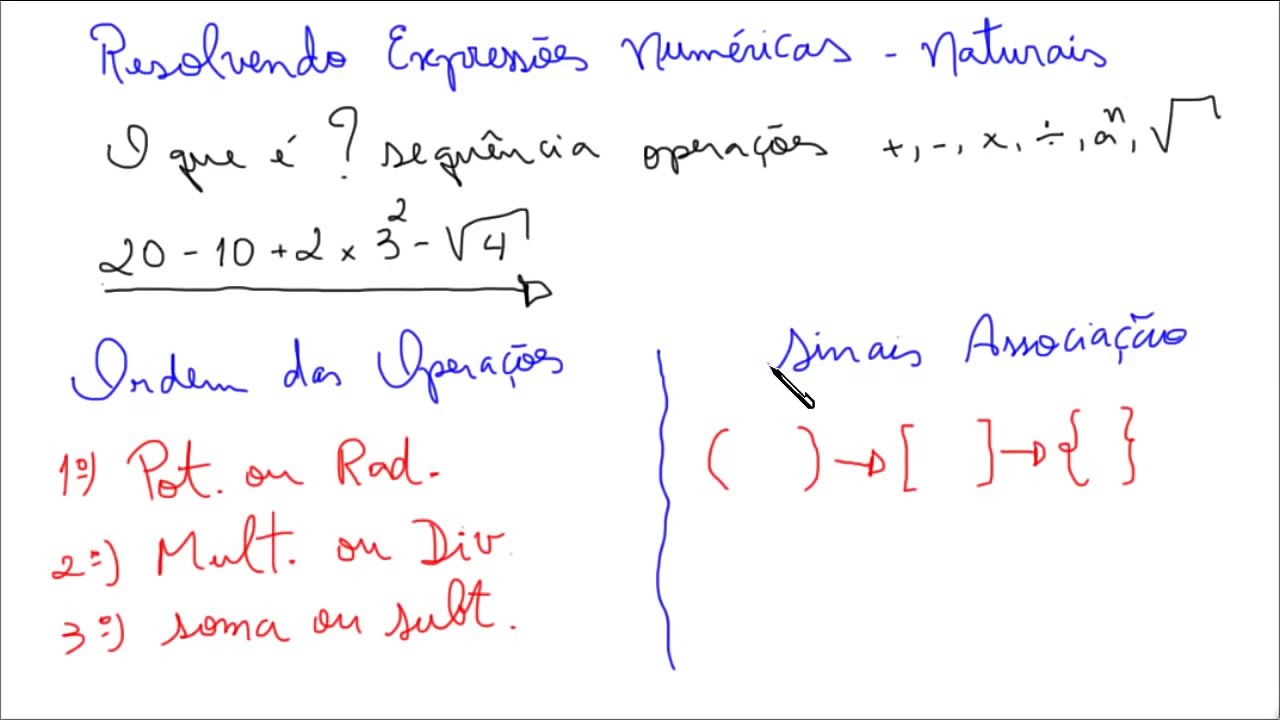 Resolvendo Expressões Numéricas - Naturais
O que é ? sequência operações +, -, x, ÷, aⁿ, √
20 - 10 + 2 x 3² - √4
Ordem das Operações
1º) Pot. ou Rad.
2º) Mult. ou Div.
3º) soma ou subt.
Sinais Associação
( ) → [ ] → { }